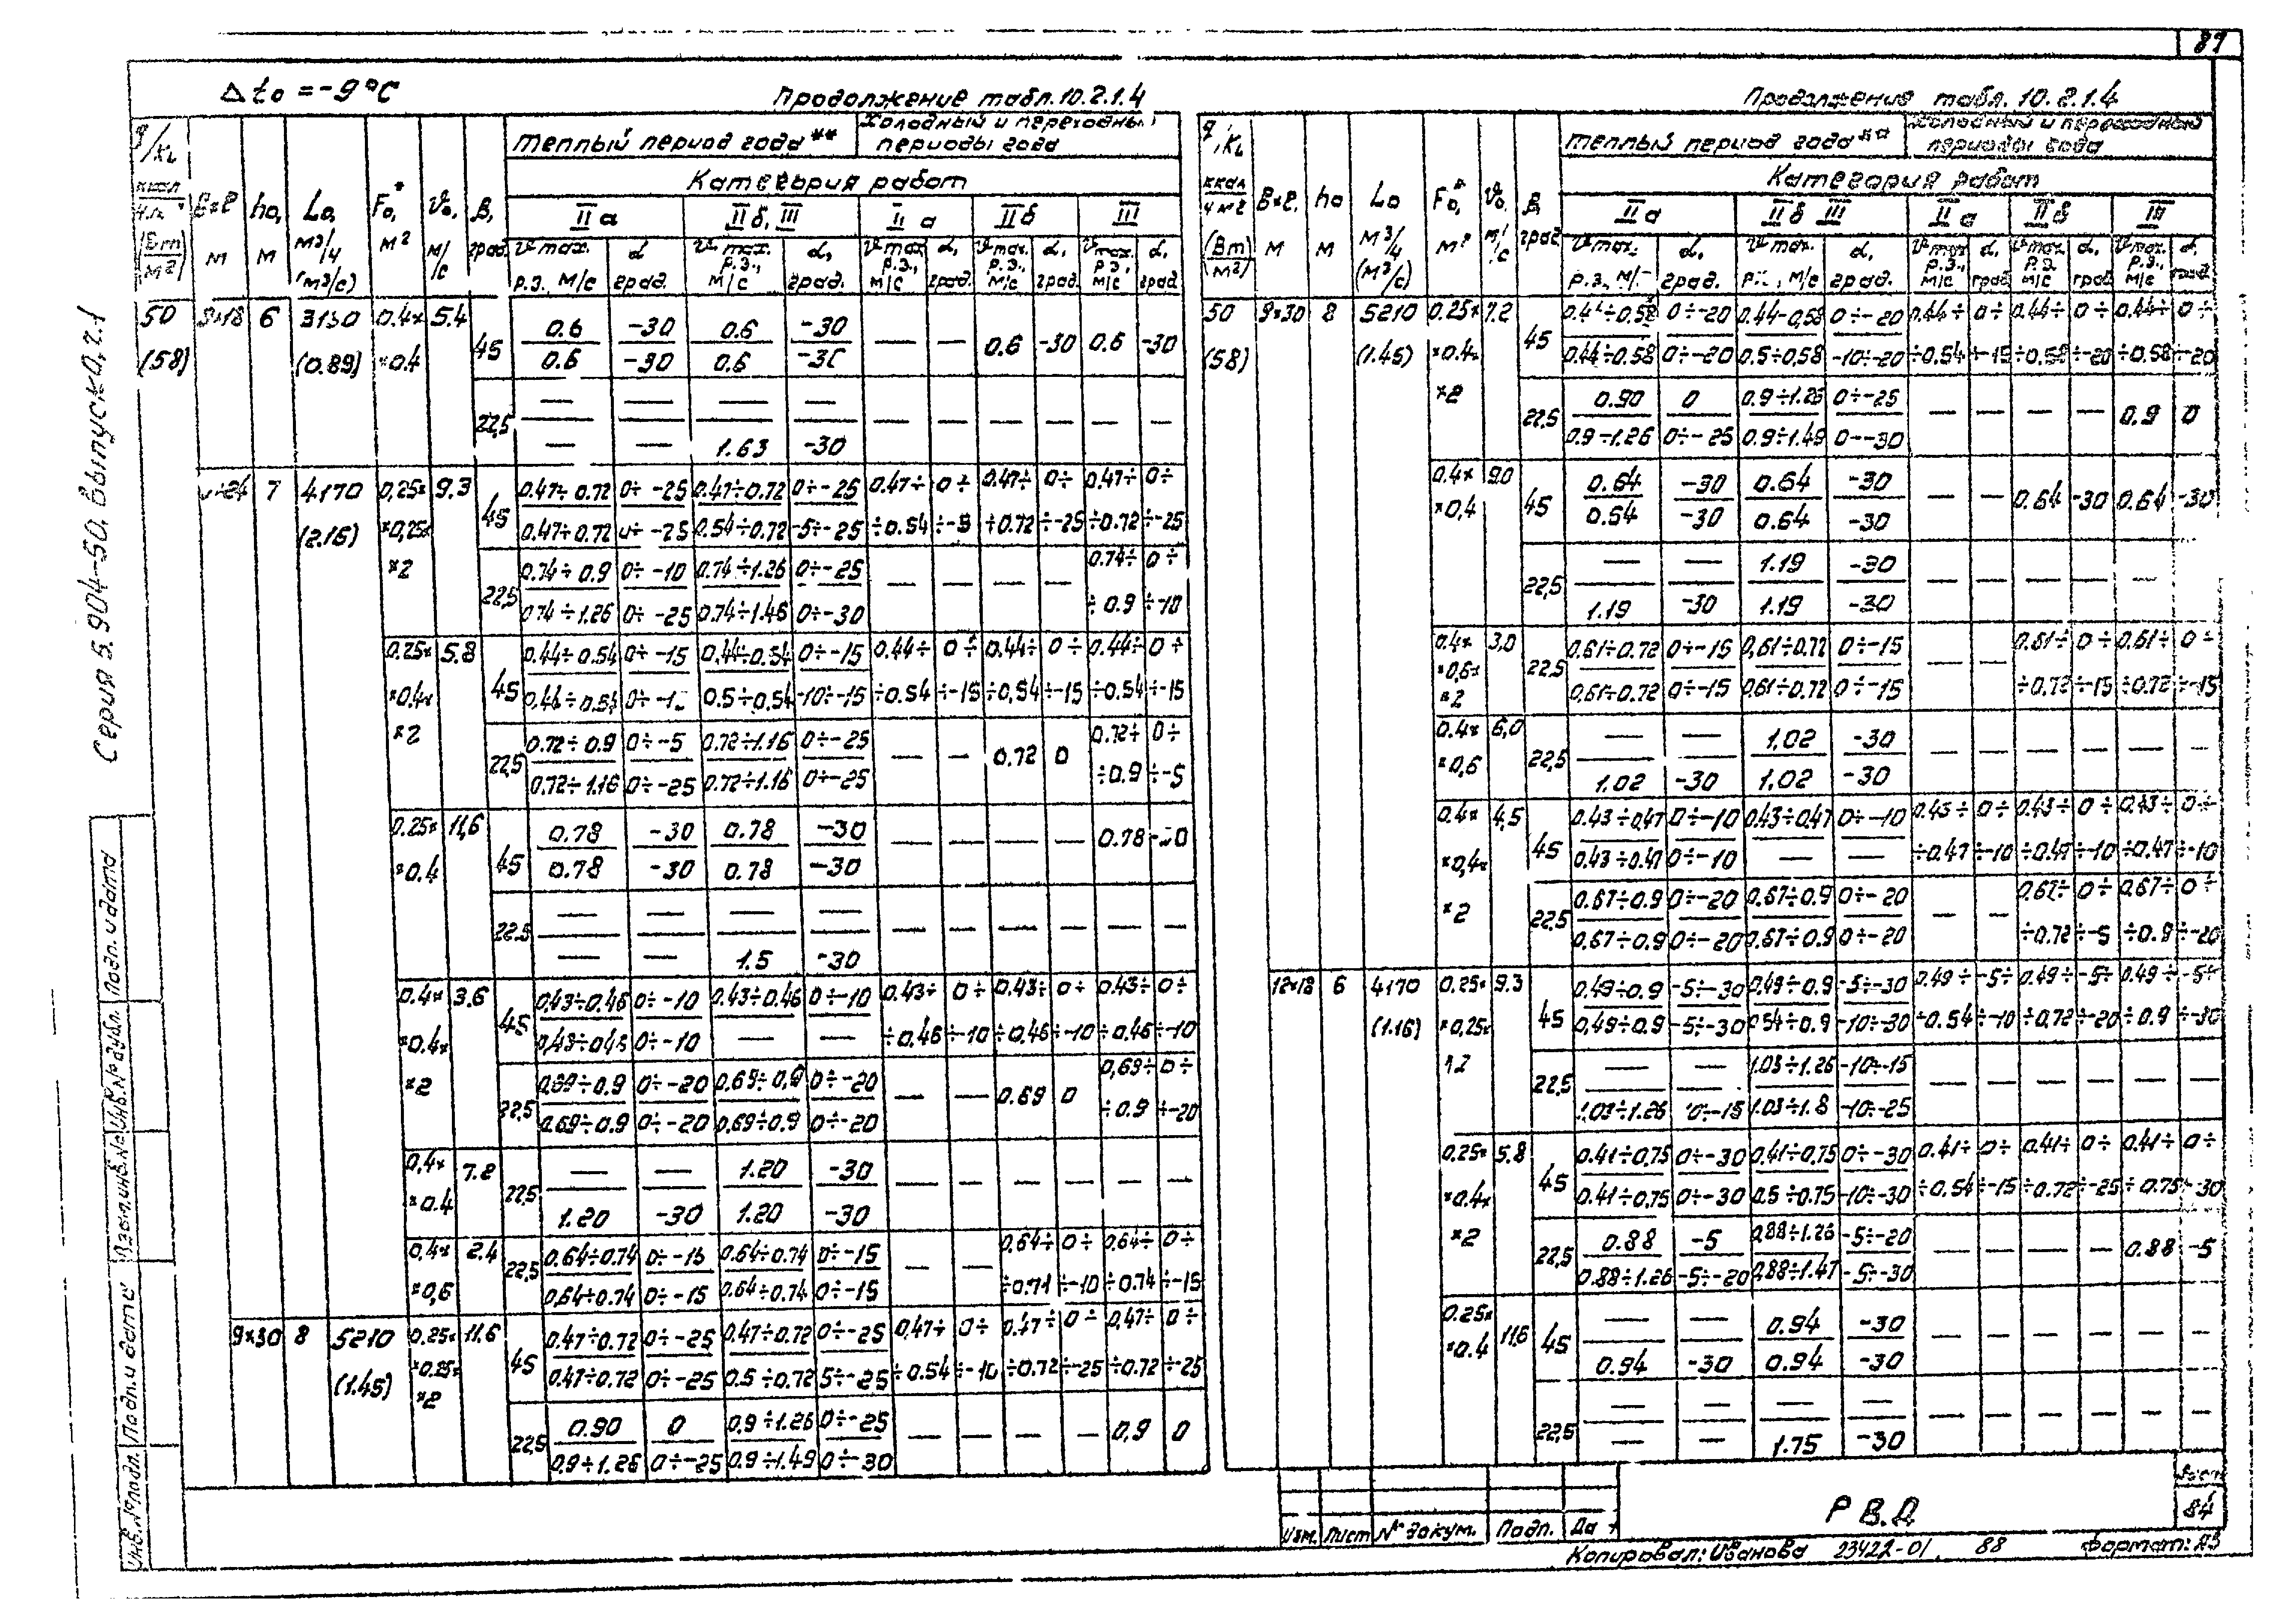 89
Δ t₀ = -9°C
Продолжение табл. 10.2.1.4
q/кL ккал/ч.м² (Вт/м²) | В×ℓ м | h₀, м | L₀, м³/ч (м³/с) | F₀*, м² | v₀, м/с | β, град. | Теплый период года** | Холодный и переходный периоды года
Категория работ
IIа | IIб, III | IIа | IIб | III
vmax. р.з., м/с | α град. | vmax. р.з., м/с | α, град. | vmax р.з., м/с | α, град. | vmax. р.з., м/с | α, град. | vmax. р.з., м/с | α, град.
50 (58) | 9×18 | 6 | 3130 (0.89) | 0.4× ×0.4 | 5.4 | 45 | 0.6 | -30 | 0.6 | -30 | — | — | 0.6 | -30 | 0.6 | -30
0.6 | -30 | 0.6 | -30
22,5 | — | — | — | — | — | — | — | — | — | —
— | — | 1.63 | -30
7 | 4170 (2.16) | 0,25× ×0,25× ×2 | 9.3 | 45 | 0.47÷0.72 | 0÷-25 | 0.47÷0.72 | 0÷-25 | 0.47÷ | 0÷ | 0.47÷ | 0÷ | 0.47÷ | 0÷
0.47÷0.72 | 0÷-25 | 0.54÷0.72 | -5÷-25 | ÷0.54 | ÷-5 | ÷0.72 | ÷-25 | ÷0.72 | ÷-25
22,5 | 0.74÷0.9 | 0÷-10 | 0.74÷1.26 | 0÷-25 | — | — | — | — | 0.74÷ | 0÷
0.74÷1.26 | 0÷-25 | 0.74÷1.46 | 0÷-30 | ÷0.9 | ÷-10
0.25× ×0.4× ×2 | 5.8 | 45 | 0.44÷0.54 | 0÷-15 | 0.44÷0.54 | 0÷-15 | 0.44÷ | 0÷ | 0.44÷ | 0÷ | 0.44÷ | 0÷
0.44÷0.54 | 0.5÷0.54 | -10÷-15 | ÷0.54 | ÷-15 | ÷0.54 | ÷-15 | ÷0.54 | ÷-15
22,5 | 0.72÷0.9 | 0÷-5 | 0.72÷1.16 | 0÷-25 | — | — | 0.72 | 0 | 0.72÷ | 0÷
0.72÷1.16 | 0÷-25 | 0.72÷1.16 | 0÷-25 | ÷0.9 | ÷-5
0.25× ×0.4 | 11,6 | 45 | 0.78 | -30 | 0.78 | -30 | — | — | — | — | 0.78
0.78 | -30 | 0.78 | -30
22.5 | — | — | — | — | — | — | — | — | — | —
— | — | 1.5 | -30
0.4× ×0.4× ×2 | 3.6 | 45 | 0,43÷0.46 | 0÷-10 | 0.43÷0.46 | 0÷-10 | 0.43÷ | 0÷ | 0.43÷ | 0÷ | 0.43÷ | 0÷
0,43÷0.46 | 0÷-10 | — | — | ÷0,46 | ÷-10 | ÷0,46 | ÷-10 | ÷0.46 | ÷-10
22,5 | 0.69÷0.9 | 0÷-20 | 0.69÷0,9 | 0÷-20 | — | — | 0.69 | 0 | 0,69÷ | 0÷
0.69÷0.9 | 0÷-20 | 0,69÷0.9 | 0÷-20 | ÷0.9 | ÷-20
0,4× ×0.4 | 7.2 | 22,5 | — | — | 1.20 | -30 | — | — | — | — | — | —
1.20 | -30 | 1.20 | -30
0,4× ×0,6 | 2.4 | 22,5 | 0.64÷0.74 | 0÷-15 | 0.64÷0.74 | 0÷-15 | — | — | 0,64÷ | 0÷ | 0,64÷ | 0÷
0,64÷0.74 | 0÷-15 | 0.64÷0.74 | 0÷-15 | ÷0.71 | ÷-10 | ÷0.74 | ÷-15
9×30 | 8 | 5210 (1.45) | 0.25× ×0.25× ×2 | 11.6 | 45 | 0.47÷0.72 | 0÷-25 | 0.47÷0.72 | 0÷-25 | 0,47÷ | 0÷ | 0.47÷ | 0÷ | 0,47÷ | 0÷
0.47÷0.72 | 0÷-25 | 0.5÷0.72 | 5÷-25 | ÷0.54 | ÷-10 | ÷0.72 | ÷-25 | ÷0.72 | ÷-25
22,5 | 0.90 | 0 | 0,9÷1.26 | 0÷-25 | — | — | — | — | 0,9 | 0
0,9÷1.26 | 0÷-25 | 0.9÷1.49 | 0÷-30
Продолжение табл. 10.2.1.4
q/кL ккал/ч м² (Вт/м²) | В×ℓ, м | h₀ м | L₀ м³/ч (м³/с) | F₀*, м² | v₀, м/с | β, град. | Теплый период года** | Холодный и переходный периоды года
Категория работ
IIа | IIб III | IIа | IIб | III
vmax. р.з., м/с | α, град. | vmax. р.з., м/с | α, град. | vmax р.з., м/с | α, град | vmax. р.з. м/с | α, град | vmax. р.з., м/с | α, град.
50 (58) | 9×30 | 8 | 5210 (1.45) | 0.25× ×0.4× ×2 | 7.2 | 45 | 0.44÷0,58 | 0÷-20 | 0.44-0,58 | 0÷-20 | 0.44÷ | 0÷ | 0.44÷ | 0÷ | 0.44÷ | 0÷
0.44÷0.58 | 0÷-20 | 0.5÷0,58 | -10÷-20 | ÷0.54 | ÷-15 | ÷0.58 | ÷-20 | ÷0.58 | ÷-20
22,5 | 0.90 | 0 | 0.9÷1.26 | 0÷-25 | — | — | — | — | 0.9 | 0
0.9÷1.26 | 0÷-25 | 0.9÷1.49 | 0--30
0.4× ×0,4 | 9.0 | 45 | 0.64 | -30 | 0.64 | -30 | — | — | 0.64 | -30 | 0.64 | -30
0.64 | -30 | 0.64 | -30
22,5 | — | — | 1.19 | -30 | — | — | — | — | —
1.19 | -30 | 1.19 | -30
0.4× ×0,6× ×2 | 3,0 | 22,5 | 0,61÷0.72 | 0÷-15 | 0,61÷0.72 | 0÷-15 | — | — | 0.61÷ | 0÷ | 0,61÷ | 0÷
0,61÷0.72 | 0÷-15 | 0,61÷0.72 | 0÷-15 | ÷0.72 | ÷-15 | ÷0.72 | ÷-15
0.4× ×0,6 | 6,0 | 22,5 | — | — | 1.02 | -30 | — | — | — | — | — | —
1.02 | -30 | 1.02 | -30
0.4× ×0,4× ×2 | 4,5 | 45 | 0.43÷0,47 | 0÷-10 | 0,43÷0,47 | 0÷-10 | 0.43÷ | 0÷ | 0.43÷ | 0÷ | 0,43÷ | 0÷
0.43÷0.47 | 0÷-10 | — | — | ÷0.47 | ÷-10 | ÷0.47 | ÷-10 | ÷0.47 | ÷-10
22,5 | 0.67÷0.9 | 0÷-20 | 0.67÷0.9 | 0÷-20 | — | — | 0,67÷ | 0÷ | 0,67÷ | 0÷
0.67÷0.9 | 0÷-20 | 0.67÷0.9 | 0÷-20 | ÷0.72 | ÷-5 | ÷0.9 | ÷-20
12×18 | 6 | 4170 (1.16) | 0.25× ×0,25× ×2 | 9.3 | 45 | 0.49÷0.9 | -5÷-30 | 0,49÷0.9 | -5÷-30 | 0.49÷ | -5÷ | 0.49÷ | -5÷ | 0.49÷ | -5÷
0,49÷0.9 | -5÷-30 | 0.54÷0.9 | -10÷-30 | ÷0.54 | ÷-10 | ÷0,72 | ÷-20 | ÷0.9 | ÷-30
22,5 | — | — | 1.03÷1.26 | -10÷-15 | — | — | — | — | — | —
1.03÷1.26 | 1.03÷1.8 | -10÷-25
0.25× ×0.4× ×2 | 5.8 | 45 | 0.41÷0,75 | 0÷-30 | 0.41÷0,75 | 0÷-30 | 0.41÷ | 0÷ | 0.41÷ | 0÷ | 0.41÷ | 0÷
0.41÷0,75 | 0÷-30 | 0.5÷0.75 | -10÷-30 | ÷0.54 | ÷-15 | ÷0.72 | ÷-25 | ÷0.75 | ÷-30
22,5 | 0.88 | -5 | 0,88÷1.26 | -5÷-20 | — | — | — | — | 0.88 | -5
0.88÷1.26 | -5÷-20 | 0,88÷1.47 | -5÷-30
0.25× ×0.4 | 11,6 | 45 | — | — | 0.94 | -30 | — | — | — | — | — | —
0.94 | -30 | 0.94 | -30
22,5 | — | — | — | — | — | — | — | — | — | —
— | — | 1.75 | -30
Серия 5.904-50. Выпуск 0,2.1
Подп. и дата
Инв. № дубл.
Взам. инв. №
Подп. и дата
Инв. № подл.
Изм. Лист № докум. Подп. Да
Р В.Д
Лист
84
Копировал: Иванова 23422-01 88 Формат: А3